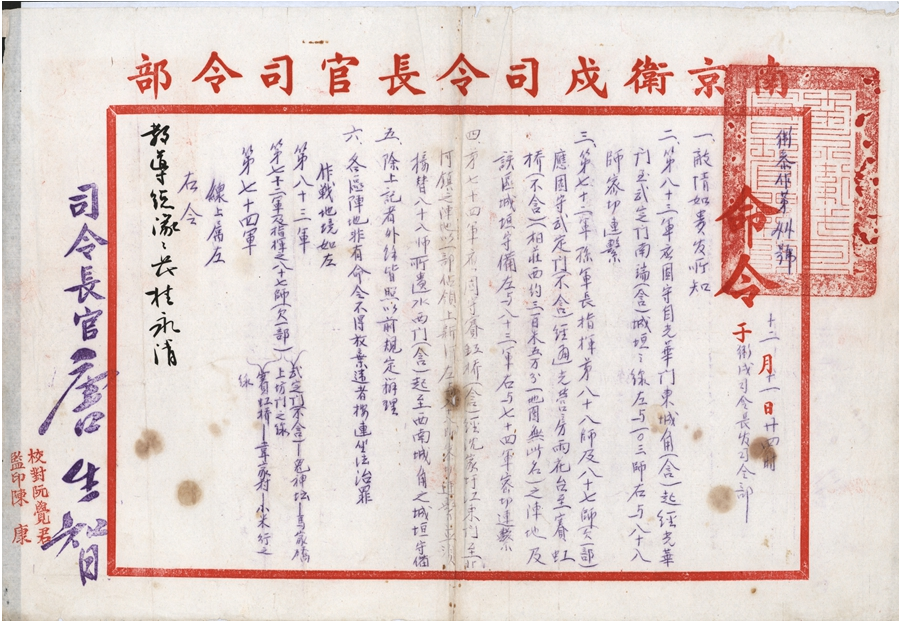 南京衛戍司令長官司令部
衛參作第卅號
命令
十二月十一日廿四時
于衛戍司令長官司令部
一、敵情如貴官所知
二、第八十三軍應固守自光華門東城角(含)起經光華
門至武定門南端(含)城垣之線左與一〇三師右與八十八
師密切連繫
三、第七十二軍孫軍長指揮第八十八師及八十七師(欠一部)
應固守武定門(不含)經通光營房雨花台至賽虹
橋(不含)(相庄西約三百米五万分一地圖無此名)之陣地及
該區城垣守備左與八十三軍右與七十四軍密切連繫
四、第七十四軍應固守賽虹橋(含)經沈家圩江東门至
河鎮之陣地以一部佔領上新河左
接替八十八師所遺水西門(含)起至西南城角之城垣守備
五、除上記者外餘皆照以前規定辦理
六、各區陣地非有命令不得放棄違者按連坐法治罪
作戰地境如左
第八十三軍
第七十二軍及指揮之八十七師(欠一部)
武定門(不含)—鬼神坛—馬家橋
上坊門之線
第七十四軍
賽虹橋—韋家村—小米行之
線
線上屬左
右令
教導總隊々長桂永清
司令長官唐生智
校對阮覺君
監印陳康